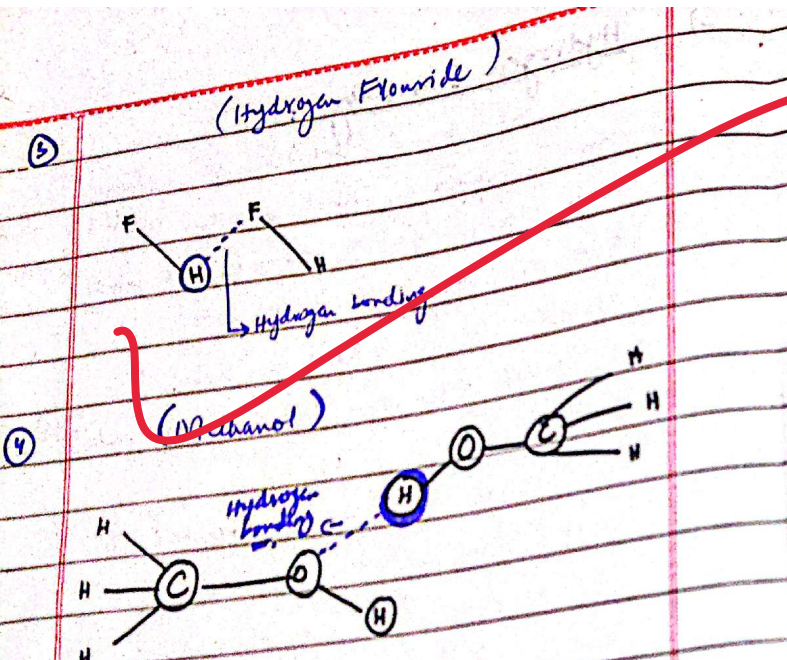 (Hydrogen Flouride)
3
F F
H H
Hydrogen bonding
4 (Methanol)
H
O C H
H H
Hydrogen
bonding
H
H C O
H
H